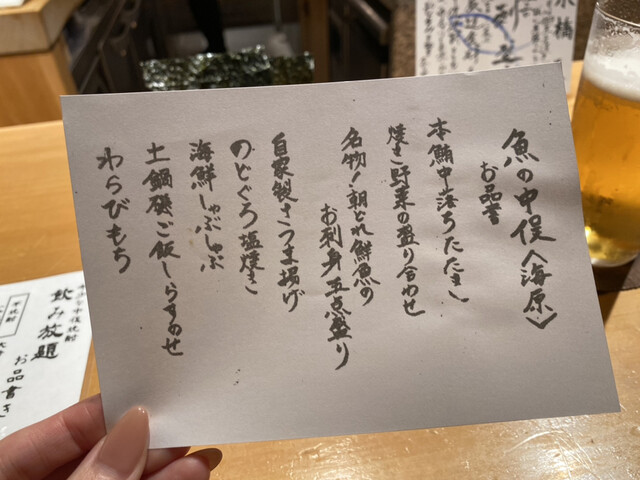 魚の中俣〈海原〉
お品書
本鮪中落ちたたき
焼き野菜の盛り合わせ
名物!朝どれ鮮魚の
お刺身五点盛り
自家製さつま揚げ
のどぐろ塩焼き
海鮮しゃぶしゃぶ
土鍋磯ご飯しらすのせ
わらびもち
飲み放題
お品書き